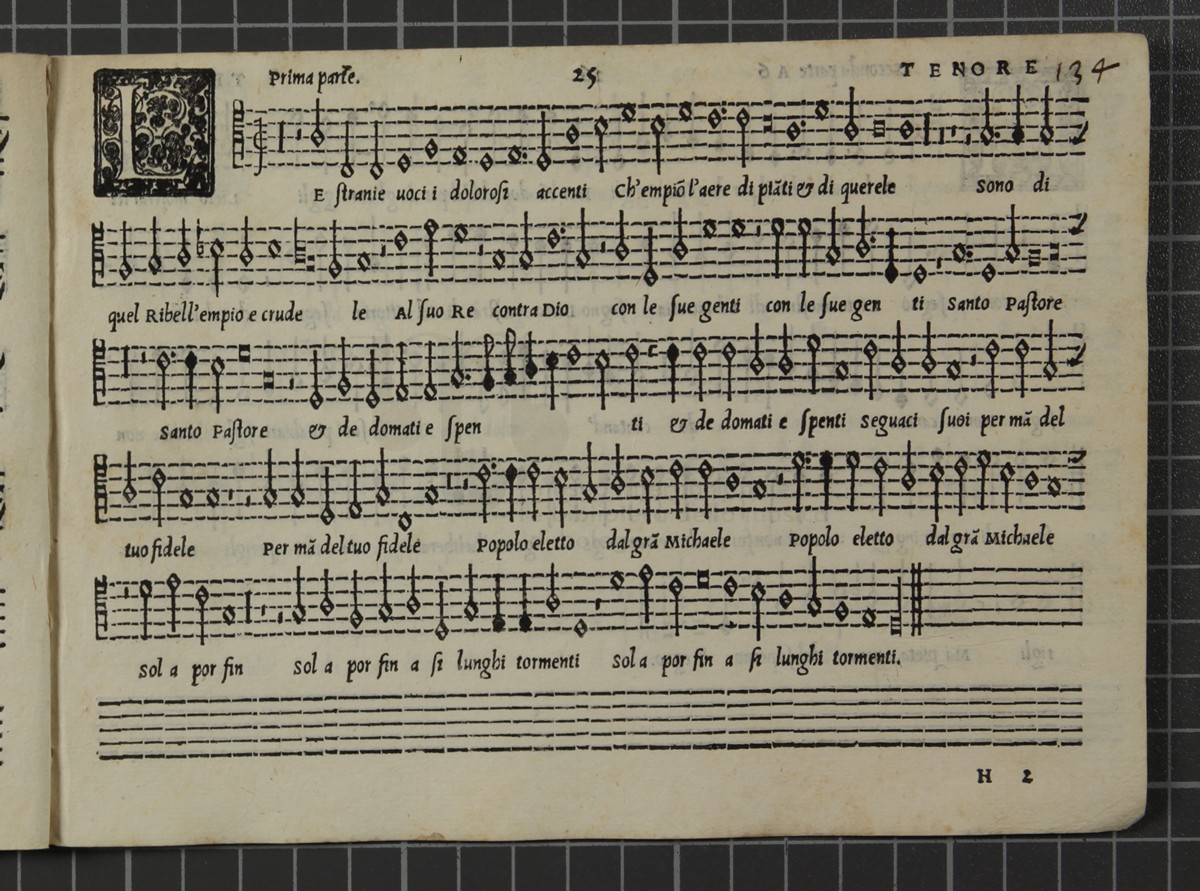 Prima parte. 25 TENORE 134
LE stranie uoci i dolorosi accenti Ch'empiõ l'aere di piãti & di querele Sono di
quel Ribell'empio e crude le Al suo Re contra Dio con le sue genti con le sue gen ti Santo Pastore
Santo Pastore & de domati e spen ti & de domati e spenti Seguaci suoi per mã del
tuo fidele Per mã del tuo fidele Popolo eletto dal grã Michaele Popolo eletto dal grã Michaele
Sol a por fin Sol a por fin a si lunghi tormenti Sol a por fin a si lunghi tormenti.
H 2